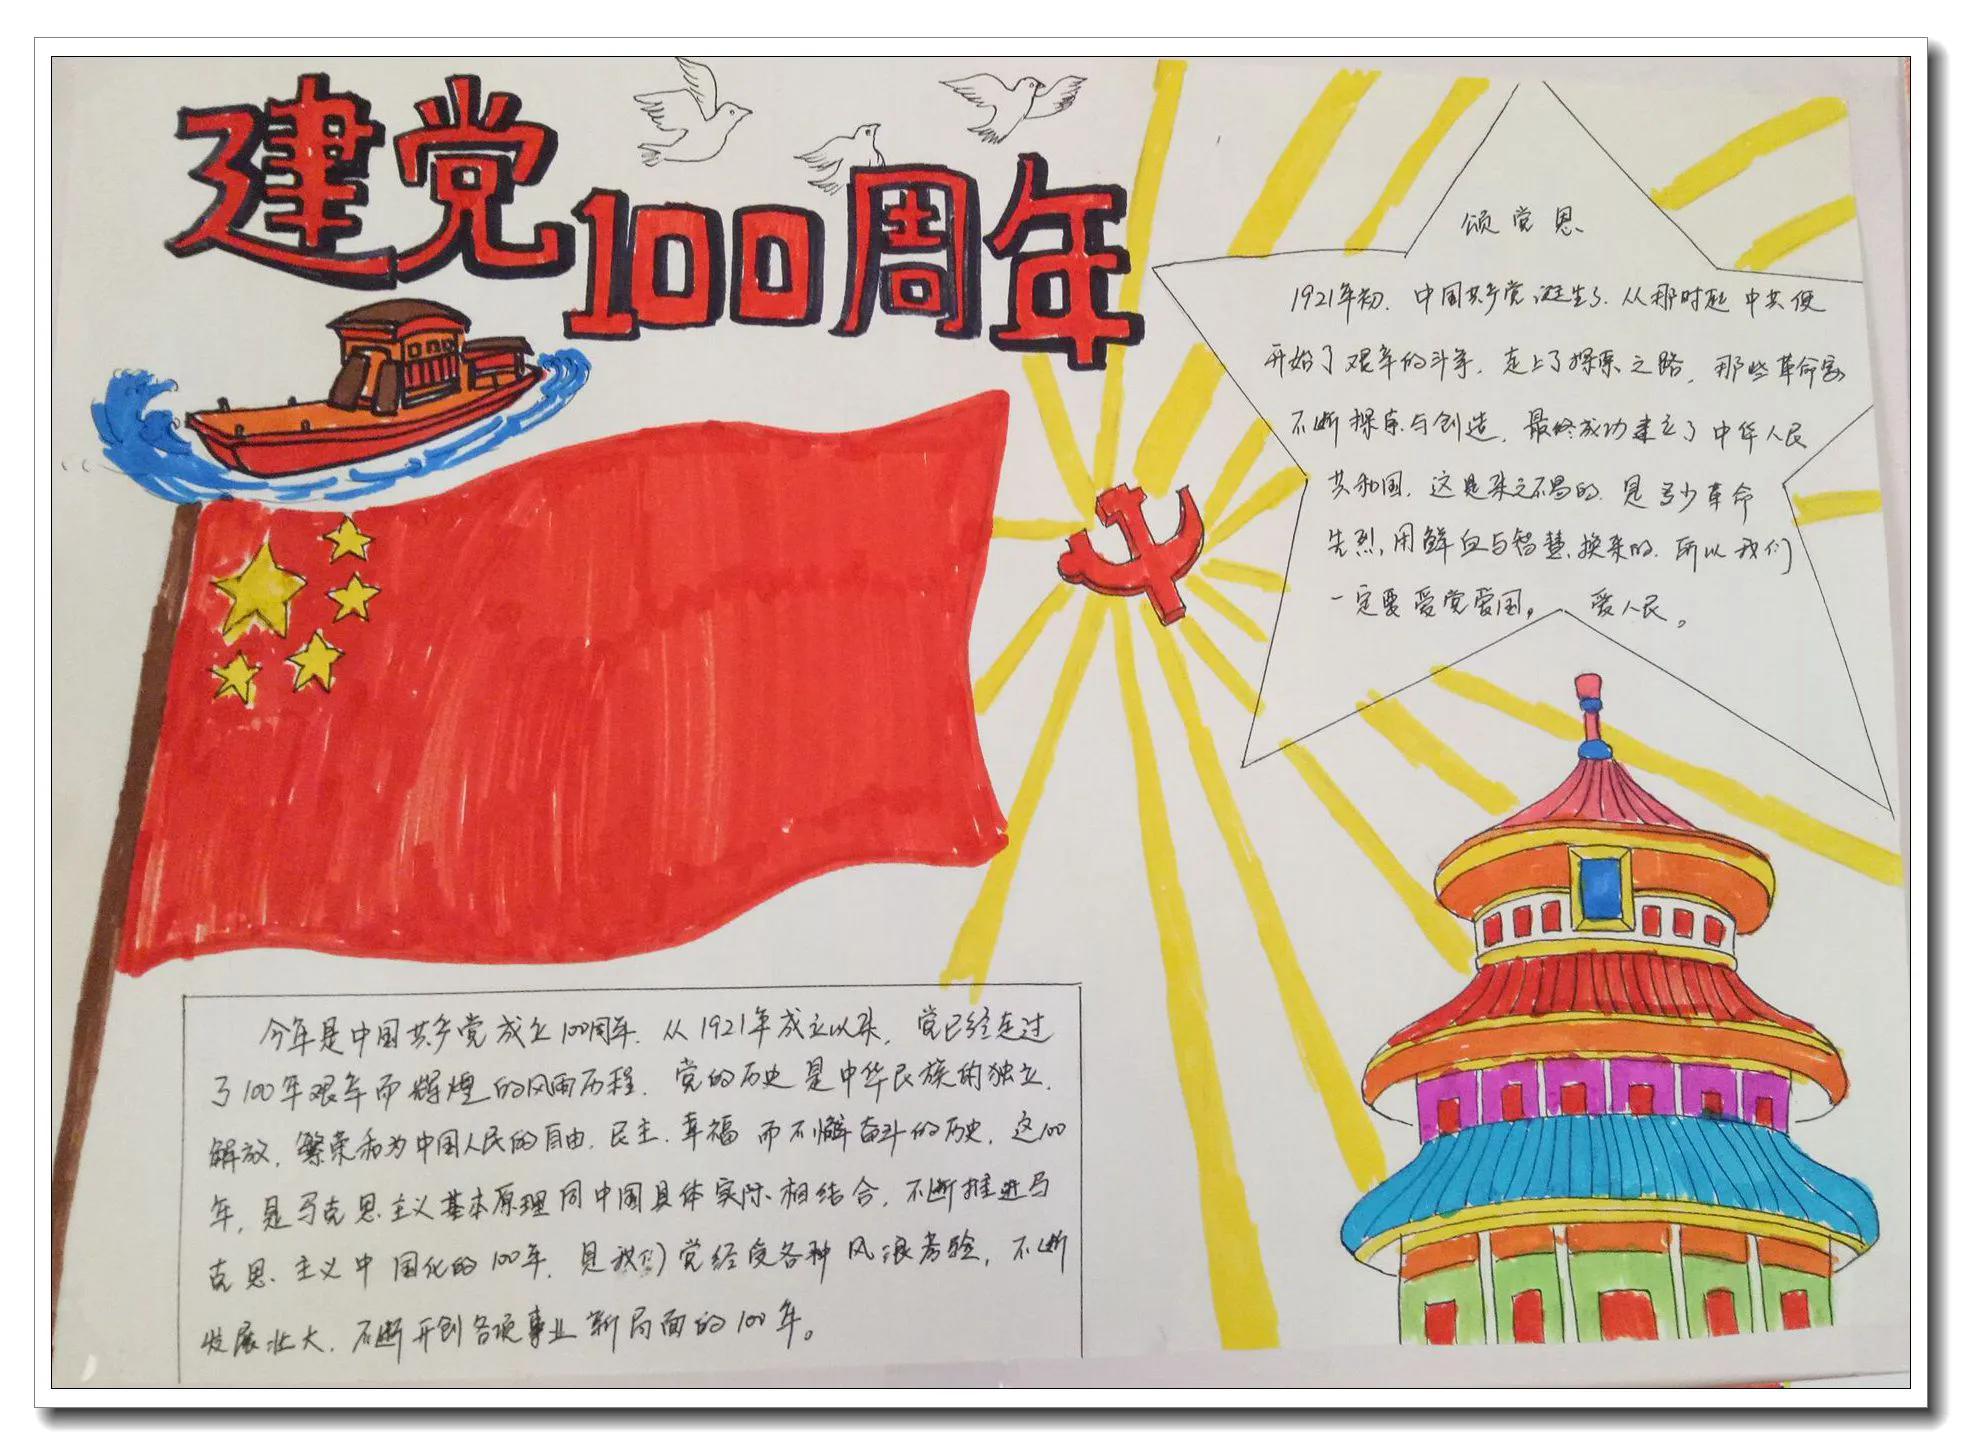 建党100周年
颂党恩
1921年初，中国共产党诞生了，从那时起中共便
开始了艰辛的斗争，走上了探索之路，那些革命家
不断探索与创造，最终成功建立了中华人民
共和国，这是来之不易的，是多少革命
先烈，用鲜血与智慧，换来的，所以我们
一定要爱党爱国，爱人民。
今年是中国共产党成立100周年，从1921年成立以来，党已经走过
了100年艰辛而辉煌的风雨历程，党的历史是中华民族的独立，
解放，繁荣和为中国人民的自由，民主，幸福而不懈奋斗的历史，这100
年，是马克思主义基本原理同中国具体实际相结合，不断推进马
克思主义中国化的100年，是我们党经受各种风浪考验，不断
发展壮大，不断开创各项事业新局面的100年。